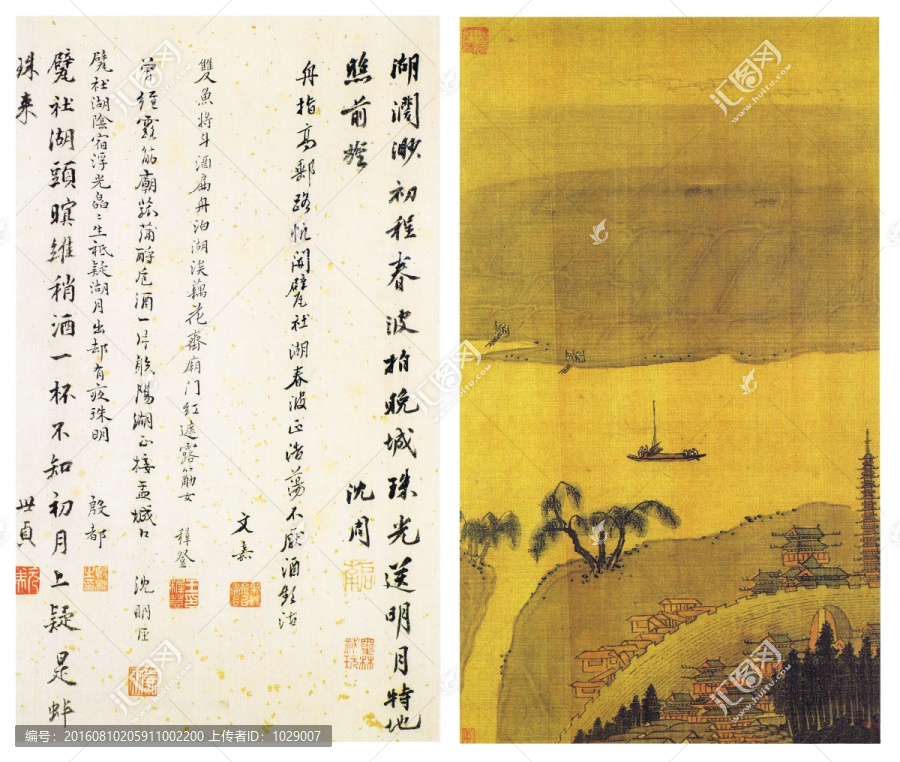 湖濶渺初程春波拍晚城珠光送明月特地
照前旌 沈周
舟指高郵路帆開甓社湖春波正浩蕩不厭酒頻沽
文嘉
雙魚將斗酒扁舟泊湖涘藕花齋廟門紅遮露筋女 穉登
曾經露筋廟蒲酹卮酒一片陽湖正接孟城口 沈明臣
甓社湖陰宿浮光皛〻生祗疑湖月出却有夜珠明 殷都
甓社湖頭暝維稍酒一杯不知初月上疑是蚌
珠来 世貞
汇图网
www.huitu.com
编号：20160810205911002200 上传者ID：1029007